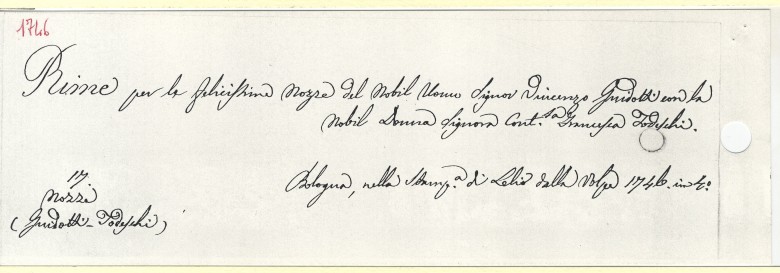 1746
Rime per le felicissime Nozze del Nobil Uomo Signor Vincenzo Guidotti con la
Nobil Donna Signora Cont.sa Francesca Todeschi.
Bologna, nella Stamp.a di Lelio dalla Volpe 1746. in 4.o
17
Nozze
(Guidotti-Todeschi)